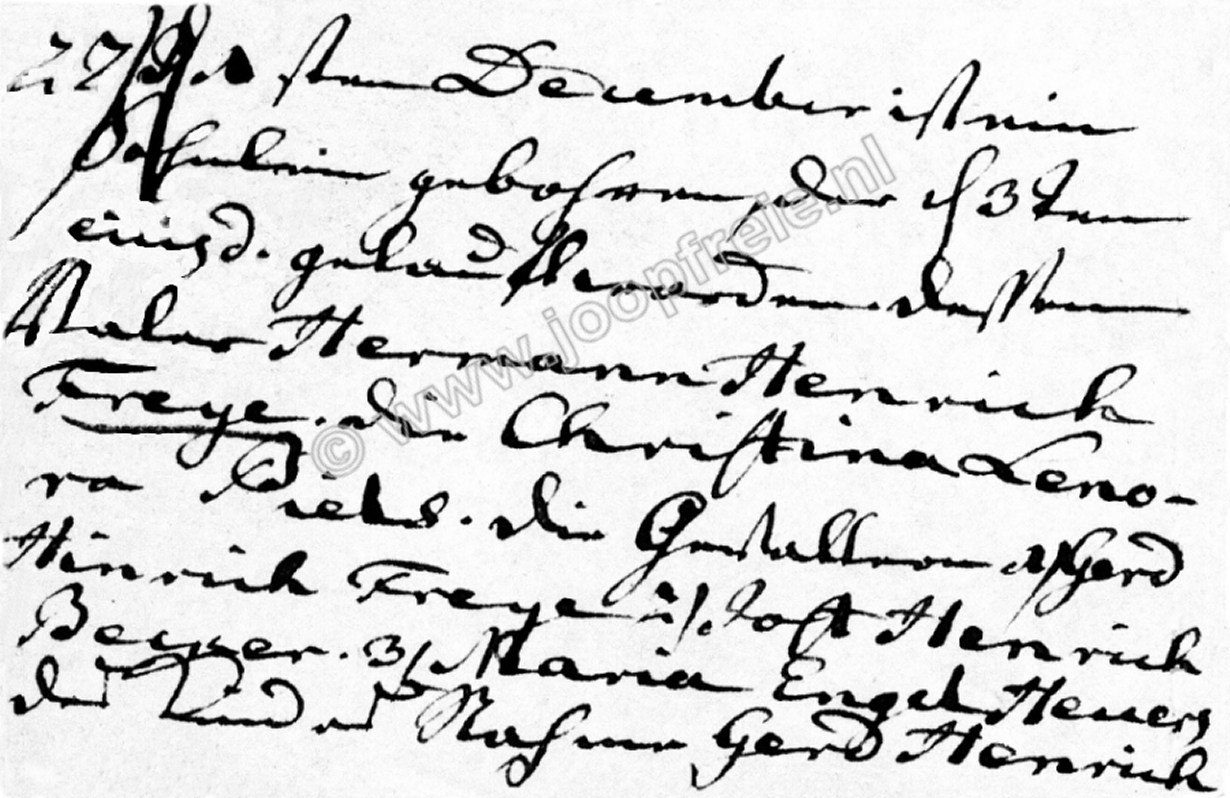 22/ sten December ist ein
Söhnlein gebohren, der d 3ten
eiusd. getaufft worden. dessen
Vater Hermann Henrich
Freye. die Christina Leno-
ra Diels. die Gevattern 1/ Gerd
Hinrich Freye 2/ Jost Henrich
Beyer. 3/ Maria Engel Heuers
des Kindes Nahme Gerd Henrich
© www.joopfreie.nl